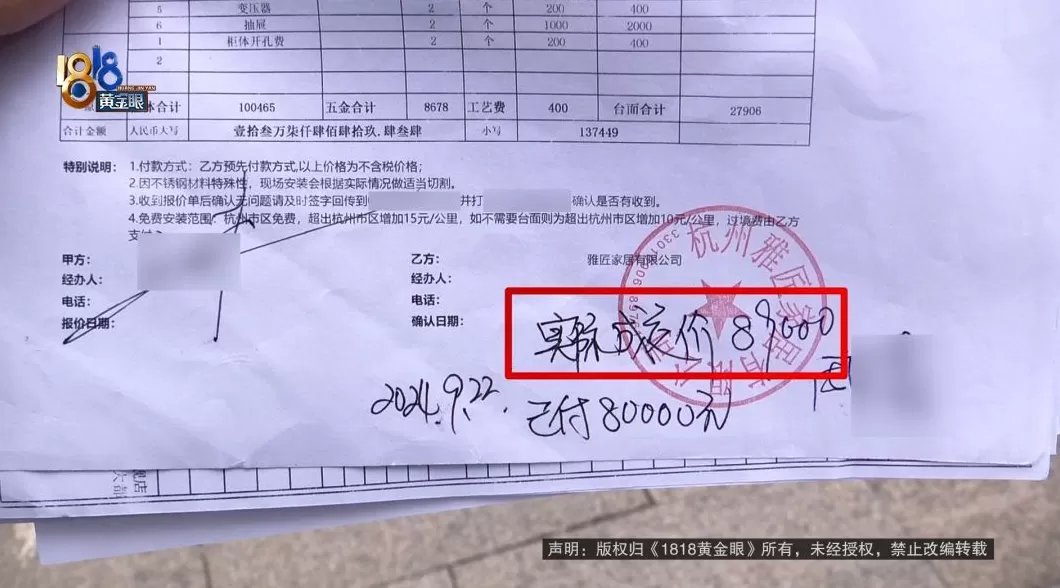 5 变压器 2 个 200 400
6 抽屉 2 个 1000 2000
1 柜体开孔费 2 个 200 400
2
1818
黄金眼
HUANG JIN YAN
体合计 100465 五金合计 8678 工艺费 400 台面合计 27906
合计金额 人民币大写 壹拾叁万柒仟肆佰肆拾玖.肆叁肆 小写 137449
特别说明: 1.付款方式:乙方预先付款方式,以上价格为不含税价格;
2.因不锈钢材料特殊性,现场安装会根据实际情况做适当切割。
3.收到报价单后确认无问题请及时签字回传到 并打 确认是否有收到。
4.免费安装范围:杭州市区免费,超出杭州市区增加15元/公里,如不需要台面则为超出杭州市区增加10元/公里,过境费由乙方
支付
甲方: 乙方: 雅匠家居有限公司
经办人: 经办人:
电话: 电话:
报价日期: 确认日期:
杭州雅匠家居有限公司
实际成交价 89000
2024.9.22. 已付80000元
声明:版权归《1818黄金眼》所有,未经授权,禁止改编转载